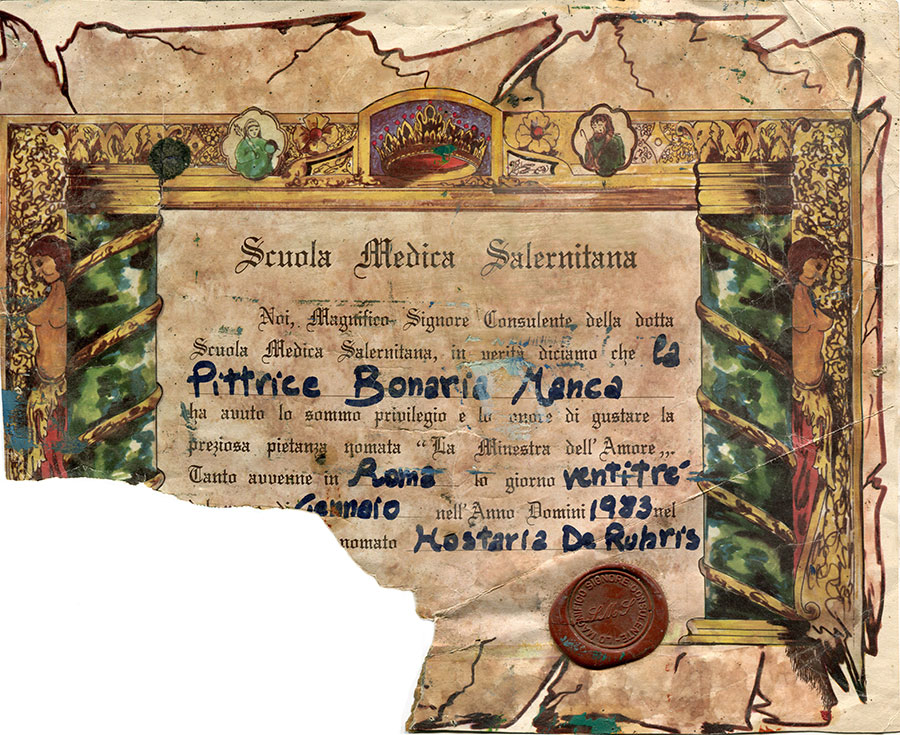 Scuola Medica Salernitana
Noi, Magnifico Signore Consulente della dotta
Scuola Medica Salernitana, in verità diciamo che la
Pittrice Bonaria Manca
ha avuto lo sommo privilegio e lo onore di gustare la
preziosa pietanza nomata “La Minestra dell'Amore„
Tanto avvenne in Roma lo giorno ventitré
Gennaio nell'Anno Domini 1983 nel
nomato Hostaria De Ruhris
MAGNIFICO SIGNORE CONSULENTE